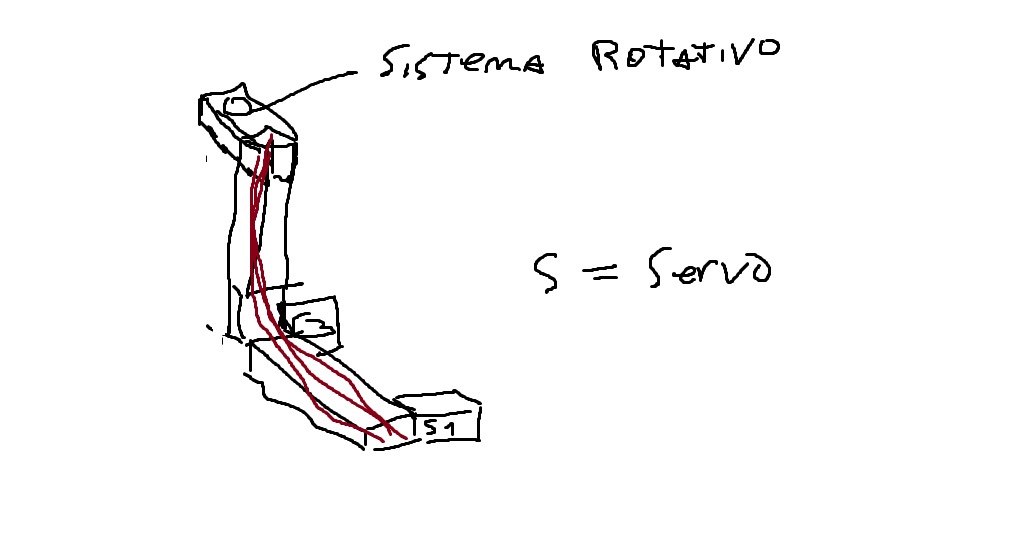 SISTEMA ROTATIVO
S = Servo
S1